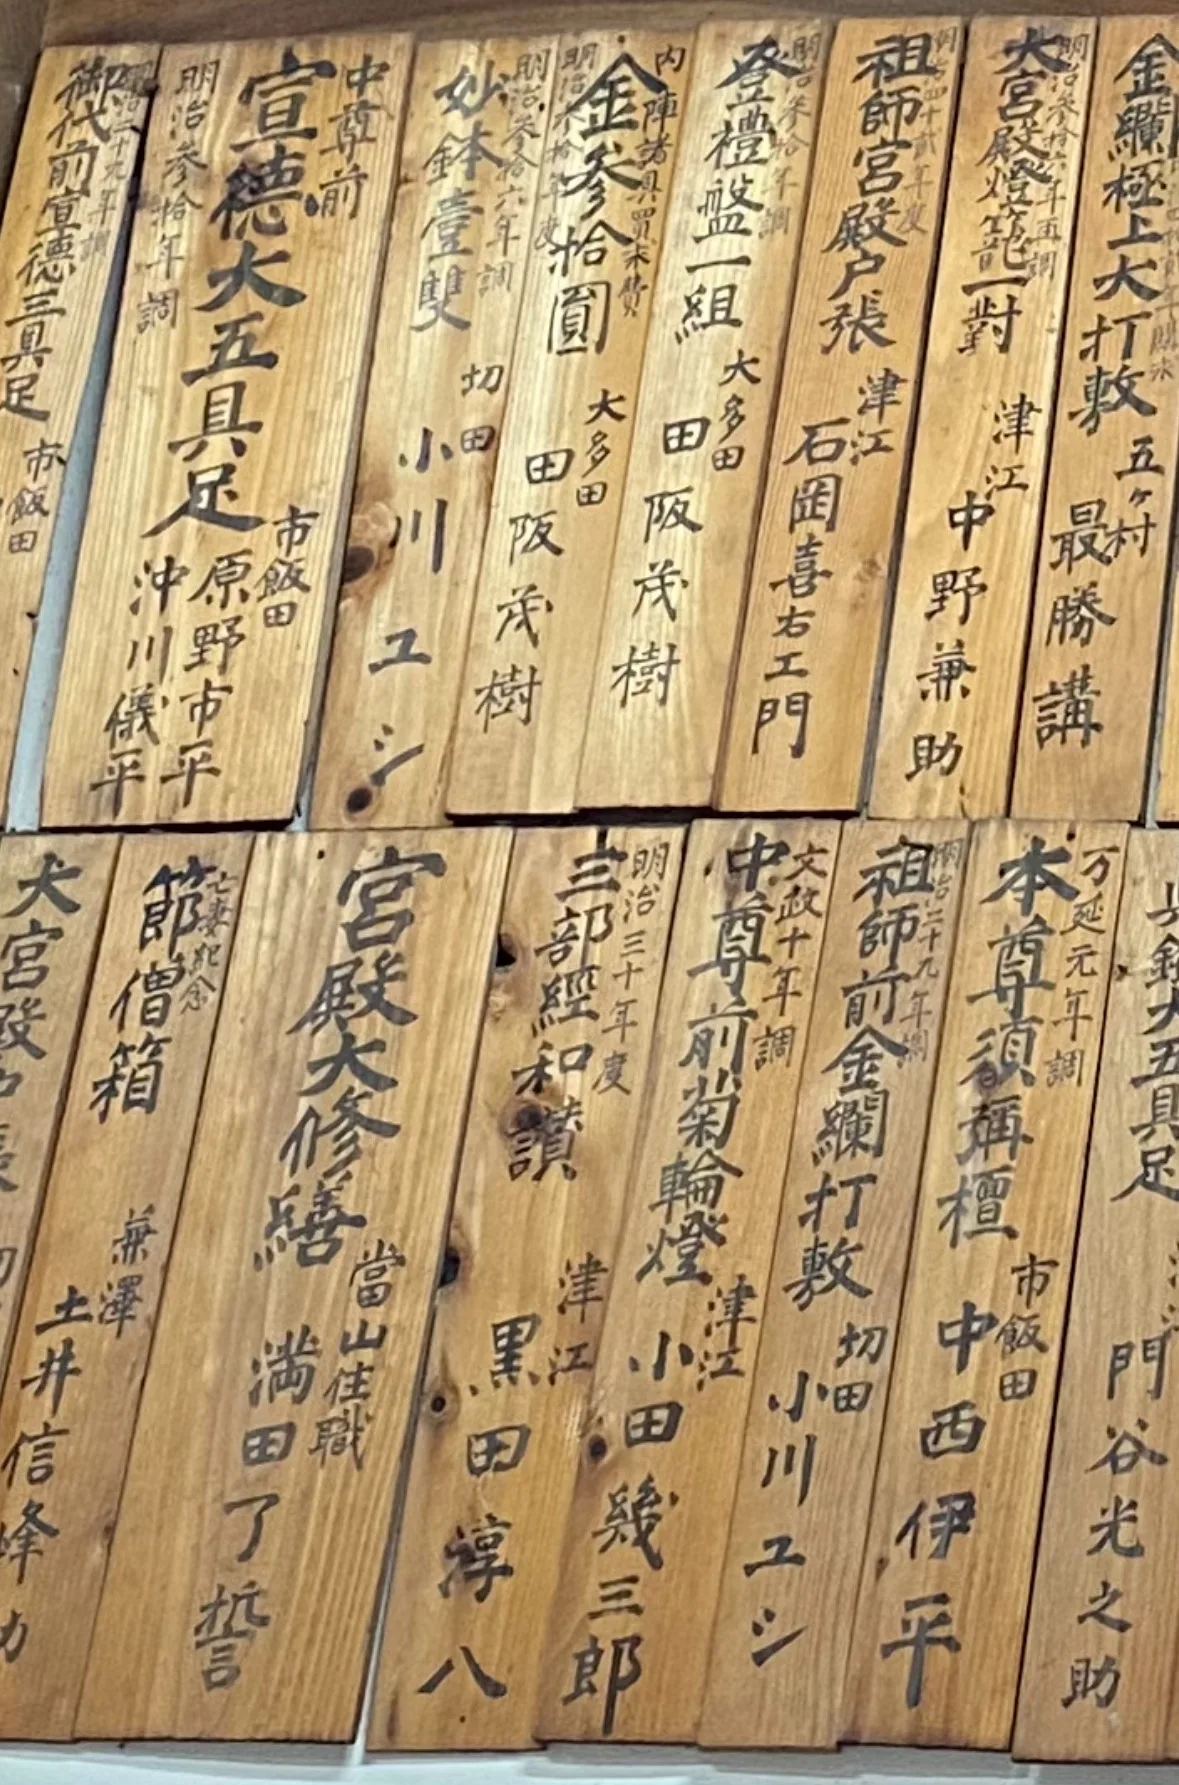 金襴極上大打敷
五ヶ村
最勝講
明治参拾六年再調
大宮殿燈籠一對
津江
中野兼助
四十貳年度
祖師宮殿戸張
津江
石岡喜右エ門
明治参拾年調
登禮盤一組
大多田
田阪茂樹
内陣諸具買求費
金参拾圓
明治参拾年度
大多田
田阪茂樹
明治参拾六年調
妙鉢壹雙
切田
小川ユシ
中尊前
宣徳大五具足
明治参拾年調
市飯田
原野市平
沖川儀平
明治二十九年調
御代前宣徳三具足
市飯田
大五具足
門谷光之助
万延元年調
本尊須弥檀
市飯田
中西伊平
明治二十九年調
祖師前金襴打敷
切田
小川ユシ
文政十年調
中尊前菊輪燈
津江
小田幾三郎
明治三十年度
三部經和讃
津江
黒田淳八
宮殿大修繕
當山住職
満田了誓
亡妻紀念
節僧箱
兼澤
土井信峰
大宮殿